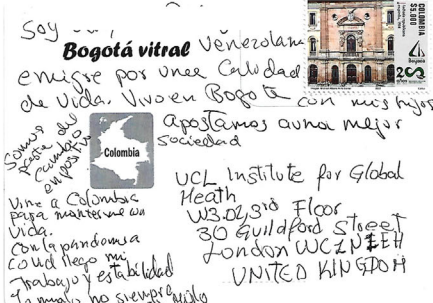 Soy
Bogotá vitral
Venezolana
emigre por una Calidad
de Vida. Vivo en Bogota con mis hijos
Apostamos a una mejor
Sociedad
Somos
parte del
Cambio
en positivo
Colombia
Vine a Colombia
para mantenerme con
Vida.
Con la pandemia
COVID llego mi
trabajo y estabilidad
no siempre
UCL Institute for Global
Heath
W3.02, 3rd Floor
30 Guildford Street
London WC1N1EH
UNITED KINGDOM
COLOMBIA
$5.000
Boyacá